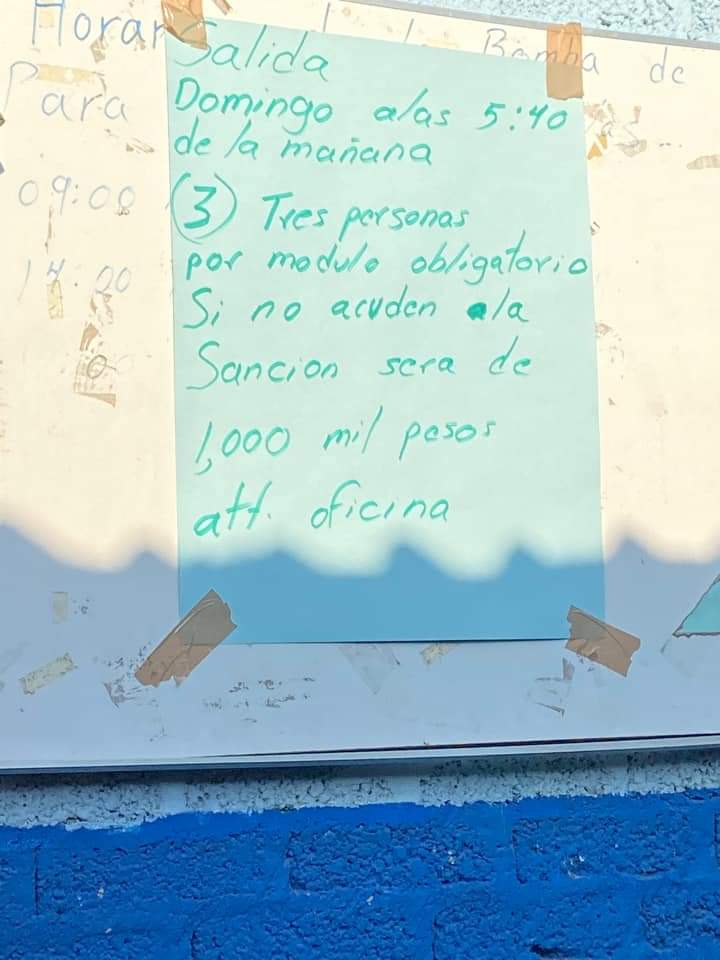 Horar Bomba de
Para
09:00
14:00
Salida
Domingo alas 5:40
de la mañana
(3) Tres personas
por modulo obligatorio
Si no acuden ala
Sancion sera de
1,000 mil pesos
att. oficina